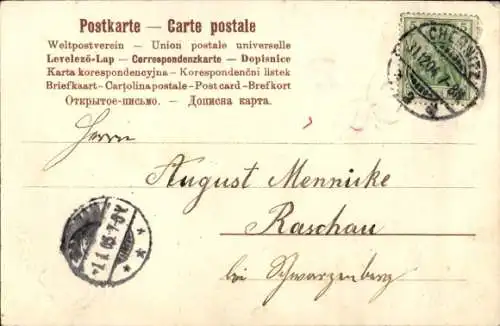 Postkarte — Carte postale
Weltpostverein — Union postale universelle
Levelező-Lap — Correspondenzkarte — Dopisnice
Karta korespondencyjna — Korespondenční lístek
Briefkaart — Cartolina postale — Post card — Brefkort
Открытое-письмо. — Дописна карта.
CHEMNITZ
Herrn
August Mennicke
Raschau
bei Schwarzenberg